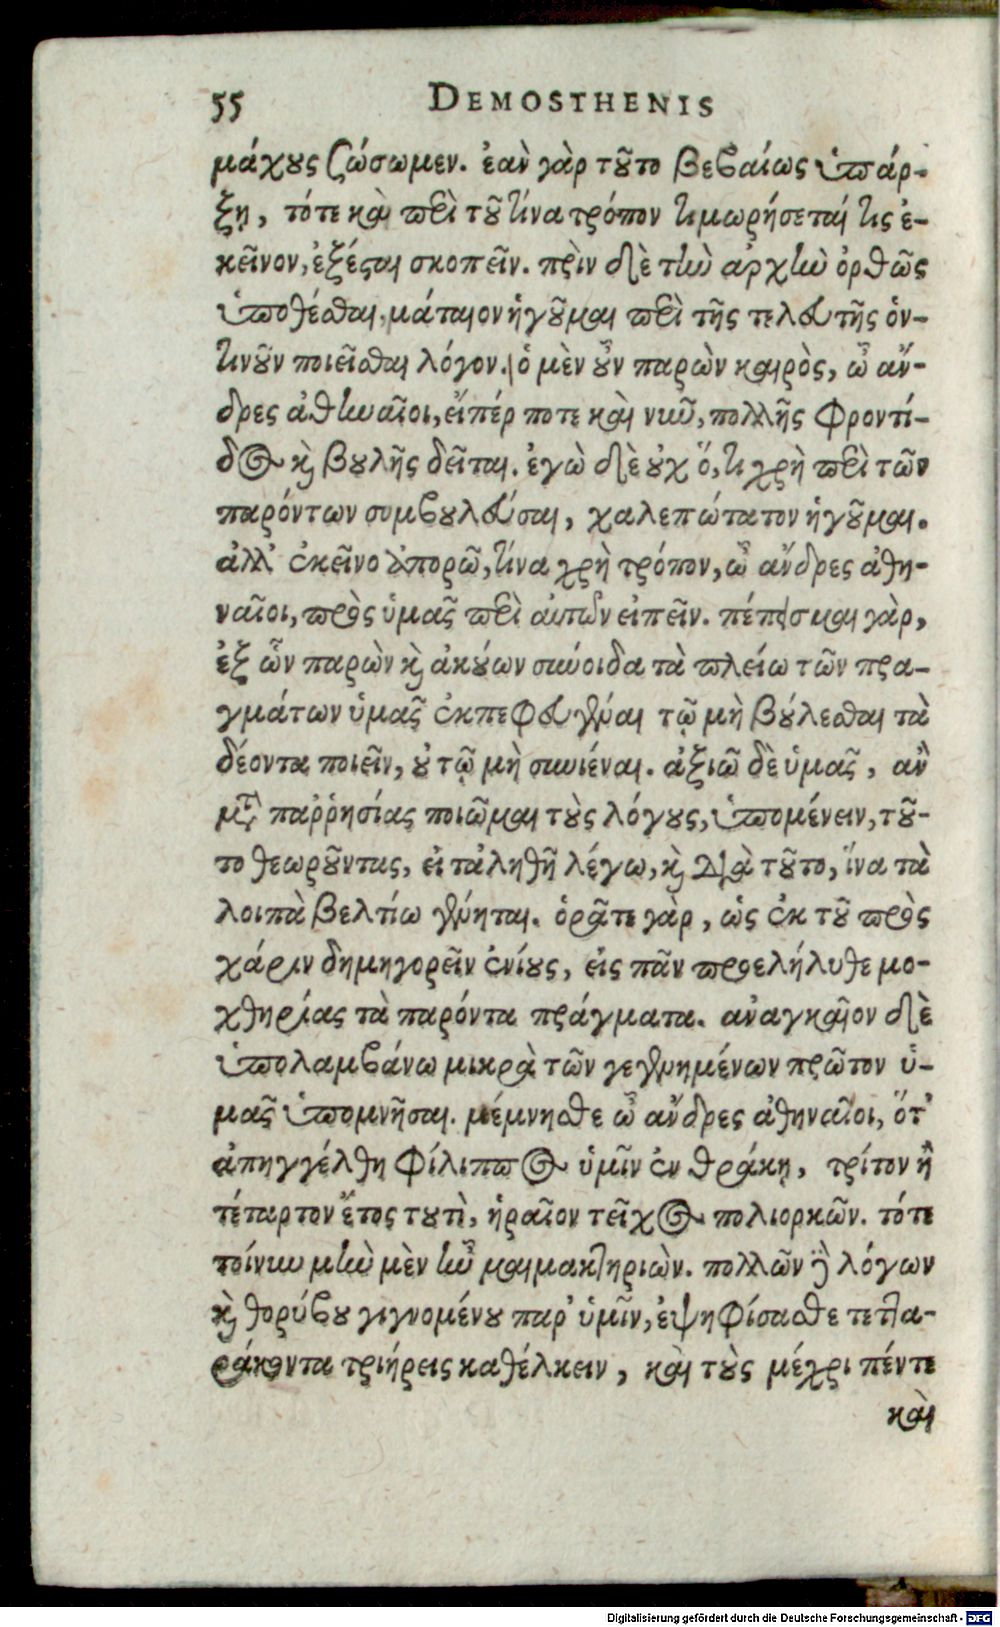 55 DEMOSTHENIS
μάχους ζώσωμεν. ἐὰν γὰρ τοῦτο βεβαίως ὑπάρ-
ξῃ, τότε καὶ περὶ τοῦ τίνα τρόπον τιμωρήσεταί τις ἐ-
κεῖνον, ἐξέσται σκοπεῖν. πρὶν δὲ τὴν ἀρχὴν ὀρθῶς
ὑποθέσθαι, μάταιον ἡγοῦμαι περὶ τῆς τελευτῆς ὁν-
τινοῦν ποιεῖσθαι λόγον. ὁ μὲν οὖν παρὼν καιρὸς, ὦ ἄν-
δρες ἀθηναῖοι, εἴπέρ ποτε καὶ νῦν, πολλῆς φροντί-
δος καὶ βουλῆς δεῖται. ἐγὼ δὲ οὐχ ὅ, τι χρὴ περὶ τῶν
παρόντων συμβουλεύσαι, χαλεπώτατον ἡγοῦμαι.
ἀλλ' ἐκεῖνο ἀπορῶ, τίνα χρὴ τρόπον, ὦ ἄνδρες ἀθη-
ναῖοι, πρὸς ὑμᾶς περὶ αὐτῶν εἰπεῖν. πέπεισμαι γὰρ,
ἐξ ὧν παρὼν καὶ ἀκούων σύνοιδα τὰ πλείω τῶν πρα-
γμάτων ὑμᾶς ἐκπεφευγέναι τῷ μὴ βούλεσθαι τὰ
δέοντα ποιεῖν, οὐ τῷ μὴ συνιέναι. ἀξιῶ δὲ ὑμᾶς, ἂν
μετὰ παῤῥησίας ποιῶμαι τοὺς λόγους, ὑπομένειν, τοῦ-
το θεωροῦντας, εἰ τἀληθῆ λέγω, καὶ διὰ τοῦτο, ἵνα τὰ
λοιπὰ βελτίω γένηται. ὁρᾶτε γὰρ, ὡς ἐκ τοῦ πρὸς
χάριν δημηγορεῖν ἐνίους, εἰς πᾶν προελήλυθε μο-
χθηρίας τὰ παρόντα πράγματα. ἀναγκαῖον δὲ
ὑπολαμβάνω μικρὰ τῶν γεγενημένων πρῶτον ὑ-
μᾶς ὑπομνῆσαι. μέμνησθε ὦ ἄνδρες ἀθηναῖοι, ὅτ'
ἀπηγγέλθη Φίλιππος ὑμῖν ἐν θράκῃ, τρίτον ἢ
τέταρτον ἔτος τουτὶ, ἡραῖον τεῖχος πολιορκῶν. τότε
τοίνυν μὴν μὲν ἦν μαιμακτηριών. πολλῶν δὲ λόγων
καὶ θορύβου γιγνομένου παρ' ὑμῖν, ἐψηφίσασθε τετλα-
ράκοντα τριήρεις καθέλκειν, καὶ τοὺς μέχρι πέντε
καὶ
Digitalisierung gefördert durch die Deutsche Forschungsgemeinschaft - DFG